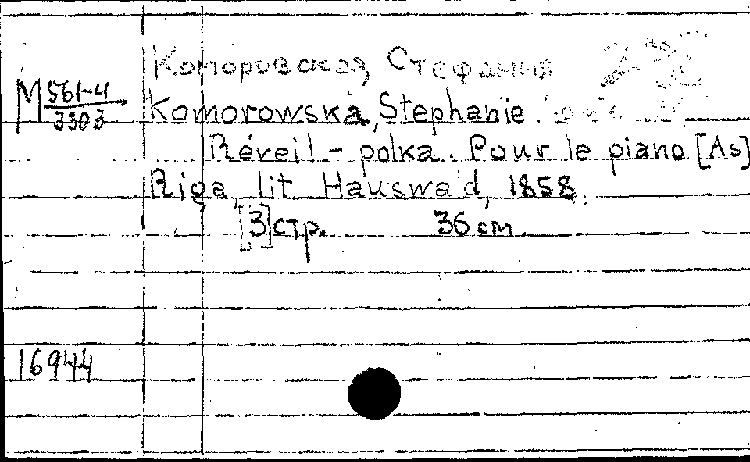 Коморовская, Стефания
М 561-4/3303
Komorowska, Stephanie.
Réveil - polka. Pour le piano [As]
Riga, lit. Hauswald, 1858.
[3] стр. 36 cm
16944